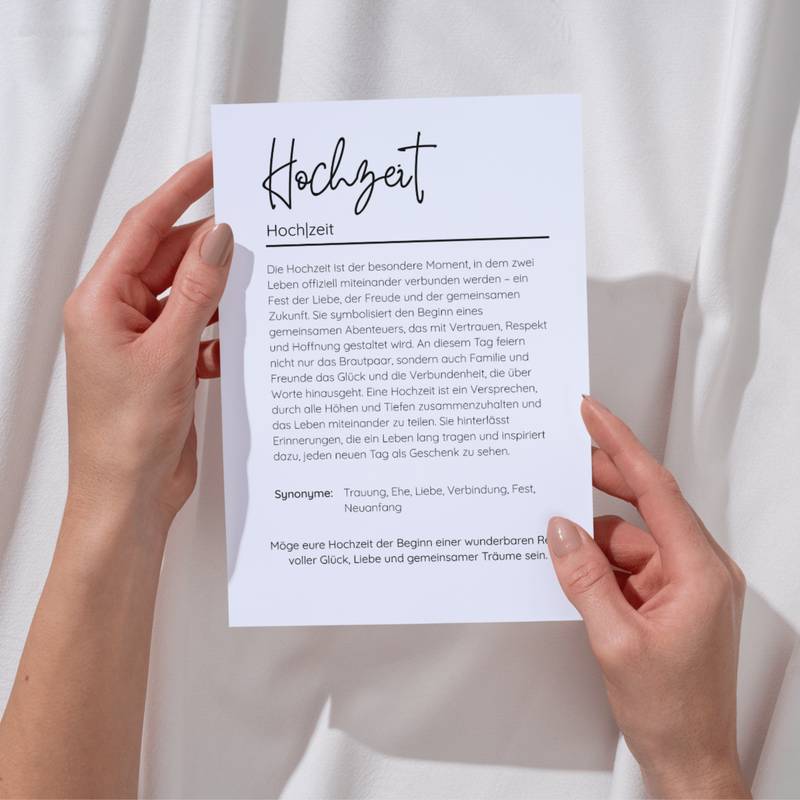 Hochzeit
Hoch|zeit
Die Hochzeit ist der besondere Moment, in dem zwei
Leben offiziell miteinander verbunden werden – ein
Fest der Liebe, der Freude und der gemeinsamen
Zukunft. Sie symbolisiert den Beginn eines
gemeinsamen Abenteuers, das mit Vertrauen, Respekt
und Hoffnung gestaltet wird. An diesem Tag feiern
nicht nur das Brautpaar, sondern auch Familie und
Freunde das Glück und die Verbundenheit, die über
Worte hinausgeht. Eine Hochzeit ist ein Versprechen,
durch alle Höhen und Tiefen zusammenzuhalten und
das Leben miteinander zu teilen. Sie hinterlässt
Erinnerungen, die ein Leben lang tragen und inspiriert
dazu, jeden neuen Tag als Geschenk zu sehen.
Synonyme: Trauung, Ehe, Liebe, Verbindung, Fest,
Neuanfang
Möge eure Hochzeit der Beginn einer wunderbaren
voller Glück, Liebe und gemeinsamer Träume sein.